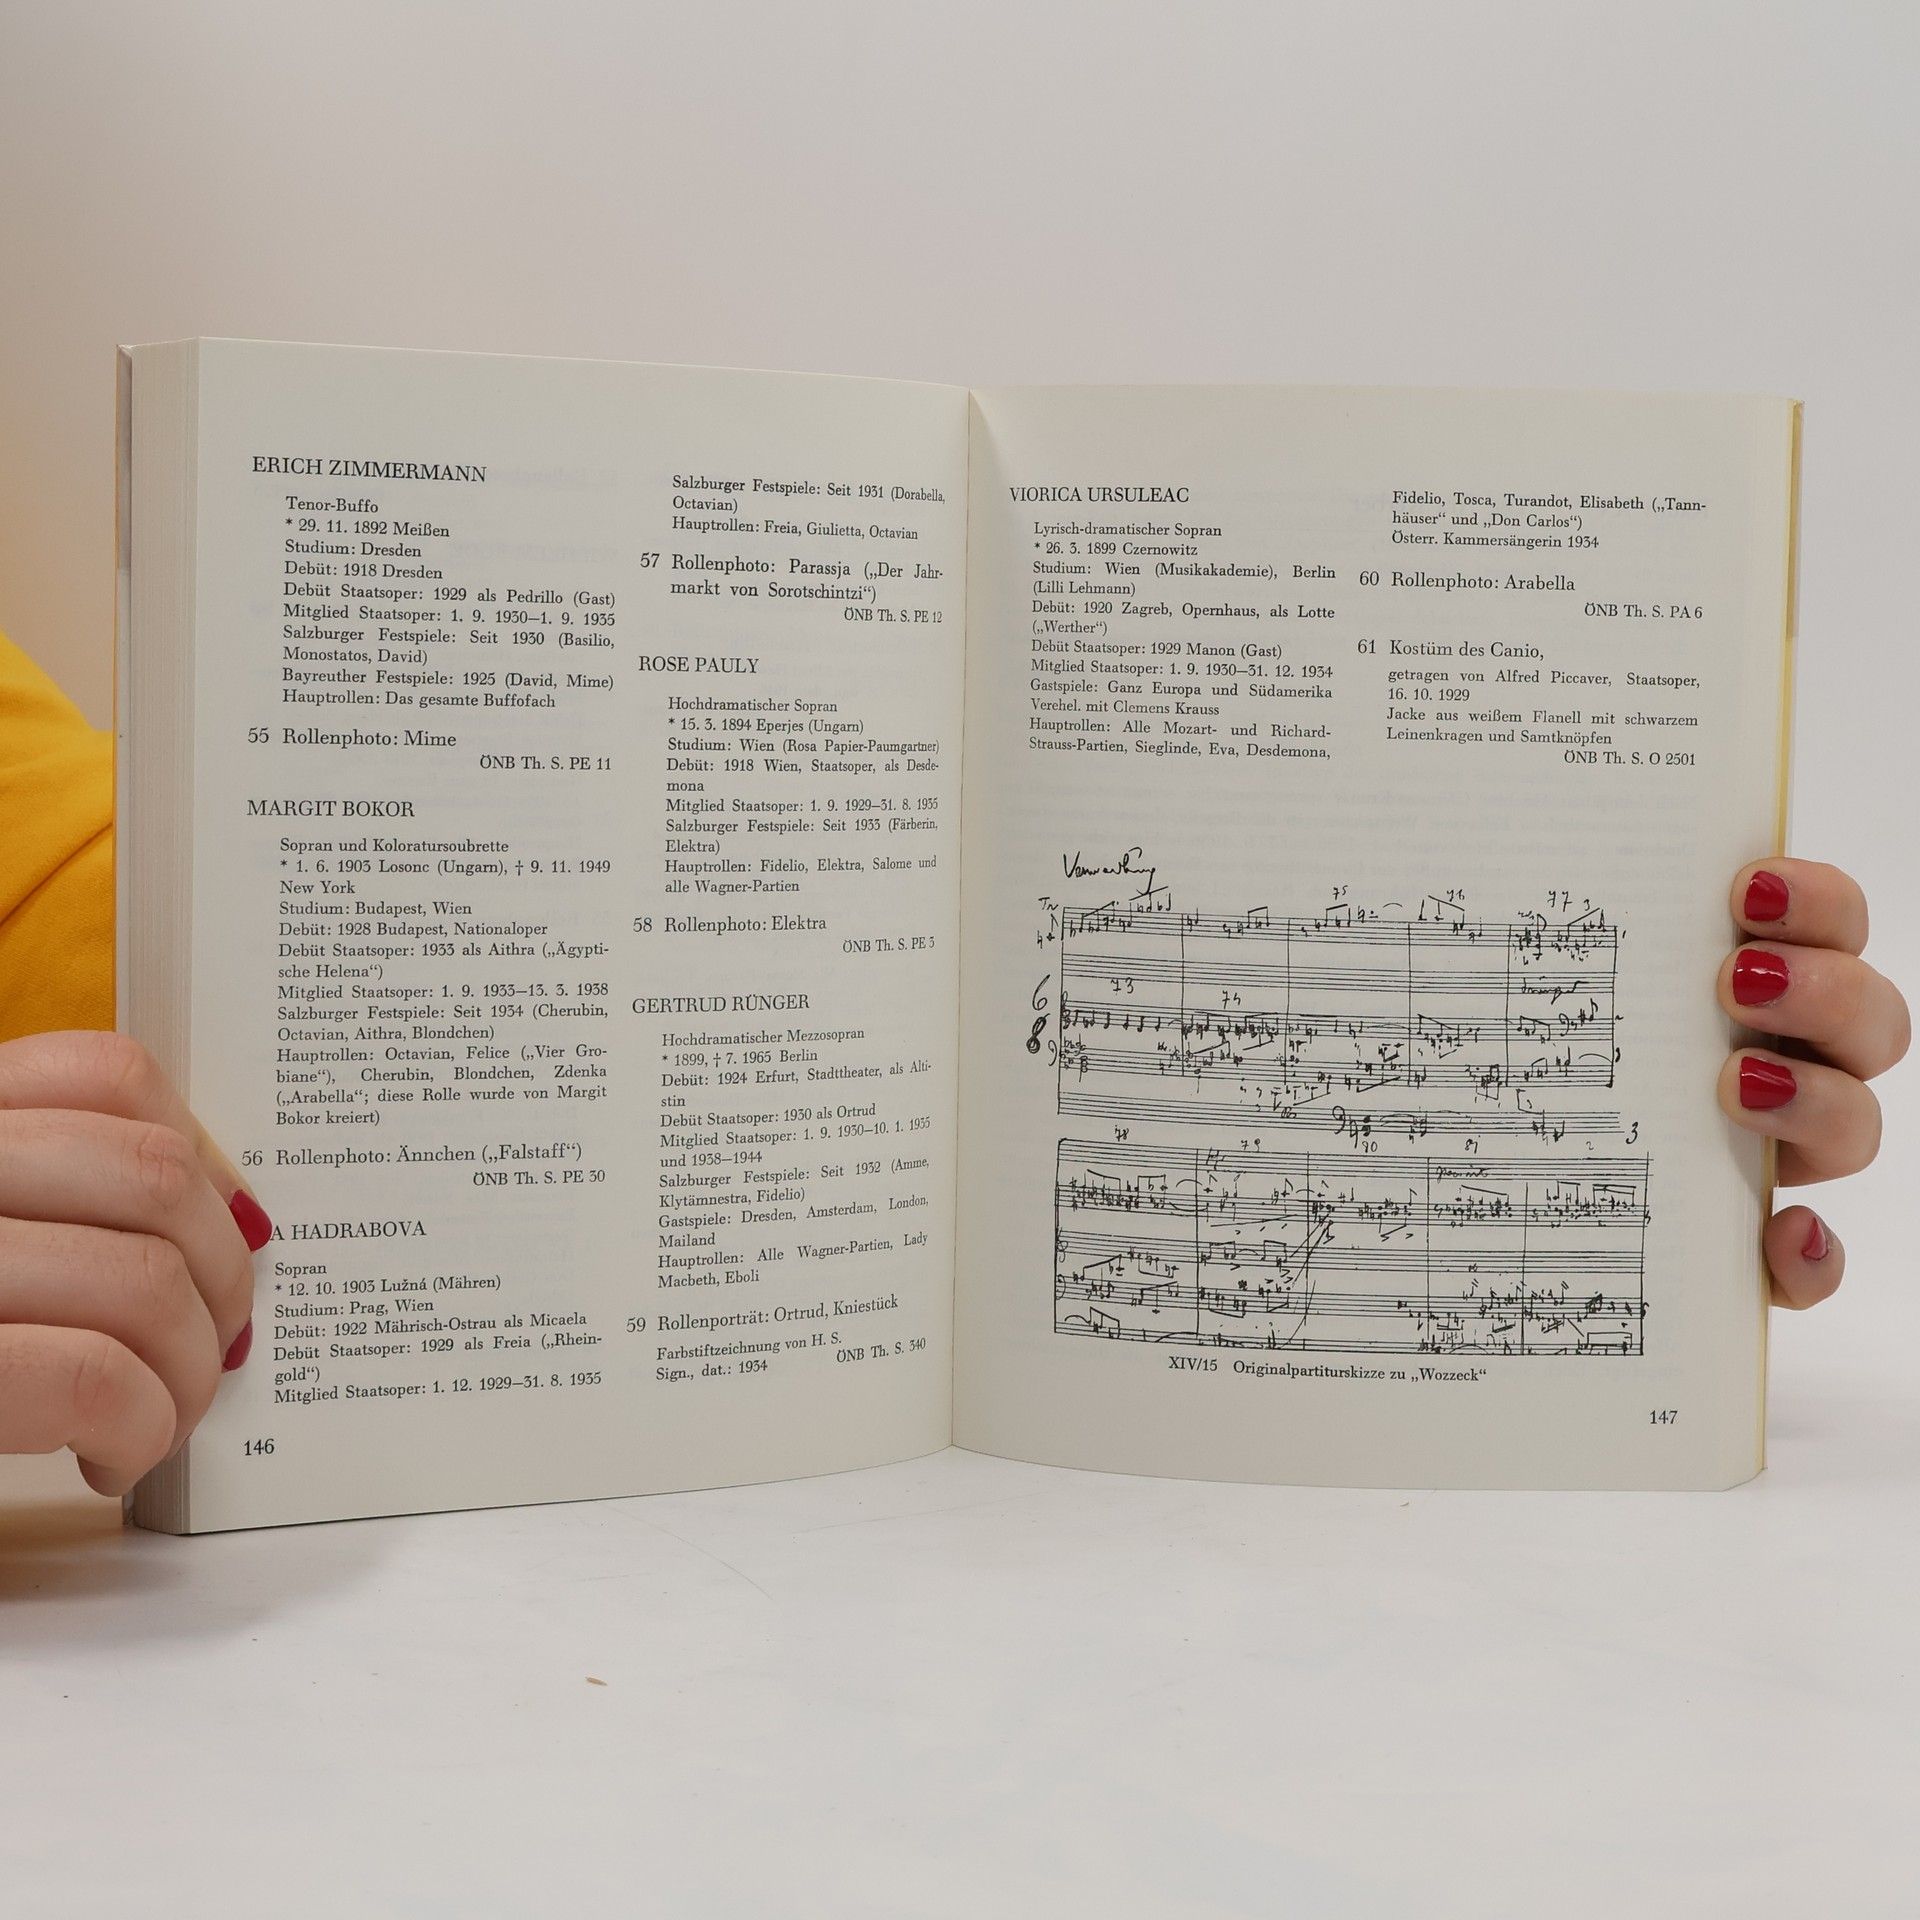 ERICH ZIMMERMANN
Tenor-Buffo
* 29. 11. 1892 Meißen
Studium: Dresden
Debüt: 1918 Dresden
Debüt Staatsoper: 1929 als Pedrillo (Gast)
Mitglied Staatsoper: 1. 9. 1930—1. 9. 1935
Salzburger Festspiele: Seit 1930 (Basilio,
Monostatos, David)
Bayreuther Festspiele: 1925 (David, Mime)
Hauptrollen: Das gesamte Buffofach
55 Rollenphoto: Mime
ÖNB Th. S. PE 11
MARGIT BOKOR
Sopran und Koloratursoubrette
* 1. 6. 1903 Losonc (Ungarn), † 9. 11. 1949
New York
Studium: Budapest, Wien
Debüt: 1928 Budapest, Nationaloper
Debüt Staatsoper: 1933 als Aithra („Ägypti-
sche Helena“)
Mitglied Staatsoper: 1. 9. 1933—13. 3. 1938
Salzburger Festspiele: Seit 1934 (Cherubin,
Octavian, Aithra, Blondchen)
Hauptrollen: Octavian, Felice („Vier Gro-
biane“), Cherubin, Blondchen, Zdenka
(„Arabella“; diese Rolle wurde von Margit
Bokor kreiert)
56 Rollenphoto: Ännchen („Falstaff“)
ÖNB Th. S. PE 30
A HADRABOVA
Sopran
* 12. 10. 1903 Lužná (Mähren)
Studium: Prag, Wien
Debüt: 1922 Mährisch-Ostrau als Micaela
Debüt Staatsoper: 1929 als Freia („Rhein-
gold“)
Mitglied Staatsoper: 1. 12. 1929—31. 8. 1935
146
Salzburger Festspiele: Seit 1931 (Dorabella,
Octavian)
Hauptrollen: Freia, Giulietta, Octavian
57 Rollenphoto: Parassja („Der Jahr-
markt von Sorotschintzi“)
ÖNB Th. S. PE 12
ROSE PAULY
Hochdramatischer Sopran
* 15. 3. 1894 Eperjes (Ungarn)
Studium: Wien (Rosa Papier-Paumgartner)
Debüt: 1918 Wien, Staatsoper, als Desde-
mona
Mitglied Staatsoper: 1. 9. 1929—31. 8. 1935
Salzburger Festspiele: Seit 1933 (Färberin,
Elektra)
Hauptrollen: Fidelio, Elektra, Salome und
alle Wagner-Partien
58 Rollenphoto: Elektra
ÖNB Th. S. PE 3
GERTRUD RÜNGER
Hochdramatischer Mezzosopran
* 1899, † 7. 1965 Berlin
Debüt: 1924 Erfurt, Stadttheater, als Alti-
stin
Debüt Staatsoper: 1930 als Ortrud
Mitglied Staatsoper: 1. 9. 1930—10. 1. 1935
und 1938—1944
Salzburger Festspiele: Seit 1932 (Amme,
Klytämnestra, Fidelio)
Gastspiele: Dresden, Amsterdam, London,
Mailand
Hauptrollen: Alle Wagner-Partien, Lady
Macbeth, Eboli
59 Rollenporträt: Ortrud, Kniestück
Farbstiftzeichnung von H. S.
Sign., dat.: 1934
ÖNB Th. S. 340
VIORICA URSULEAC
Lyrisch-dramatischer Sopran
* 26. 3. 1899 Czernowitz
Studium: Wien (Musikakademie), Berlin
(Lilli Lehmann)
Debüt: 1920 Zagreb, Opernhaus, als Lotte
(„Werther“)
Debüt Staatsoper: 1929 Manon (Gast)
Mitglied Staatsoper: 1. 9. 1930—31. 12. 1934
Gastspiele: Ganz Europa und Südamerika
Verehel. mit Clemens Krauss
Hauptrollen: Alle Mozart- und Richard-
Strauss-Partien, Sieglinde, Eva, Desdemona,
Fidelio, Tosca, Turandot, Elisabeth („Tann-
häuser“ und „Don Carlos“)
Österr. Kammersängerin 1934
60 Rollenphoto: Arabella
ÖNB Th. S. PA 6
61 Kostüm des Canio,
getragen von Alfred Piccaver, Staatsoper,
16. 10. 1929
Jacke aus weißem Flanell mit schwarzem
Leinenkragen und Samtknöpfen
ÖNB Th. S. O 2501
75 76 77 3
73 74
6
8
78 79 80 81 2 3
XIV/15 Originalpartiturskizze zu „Wozzeck“
147